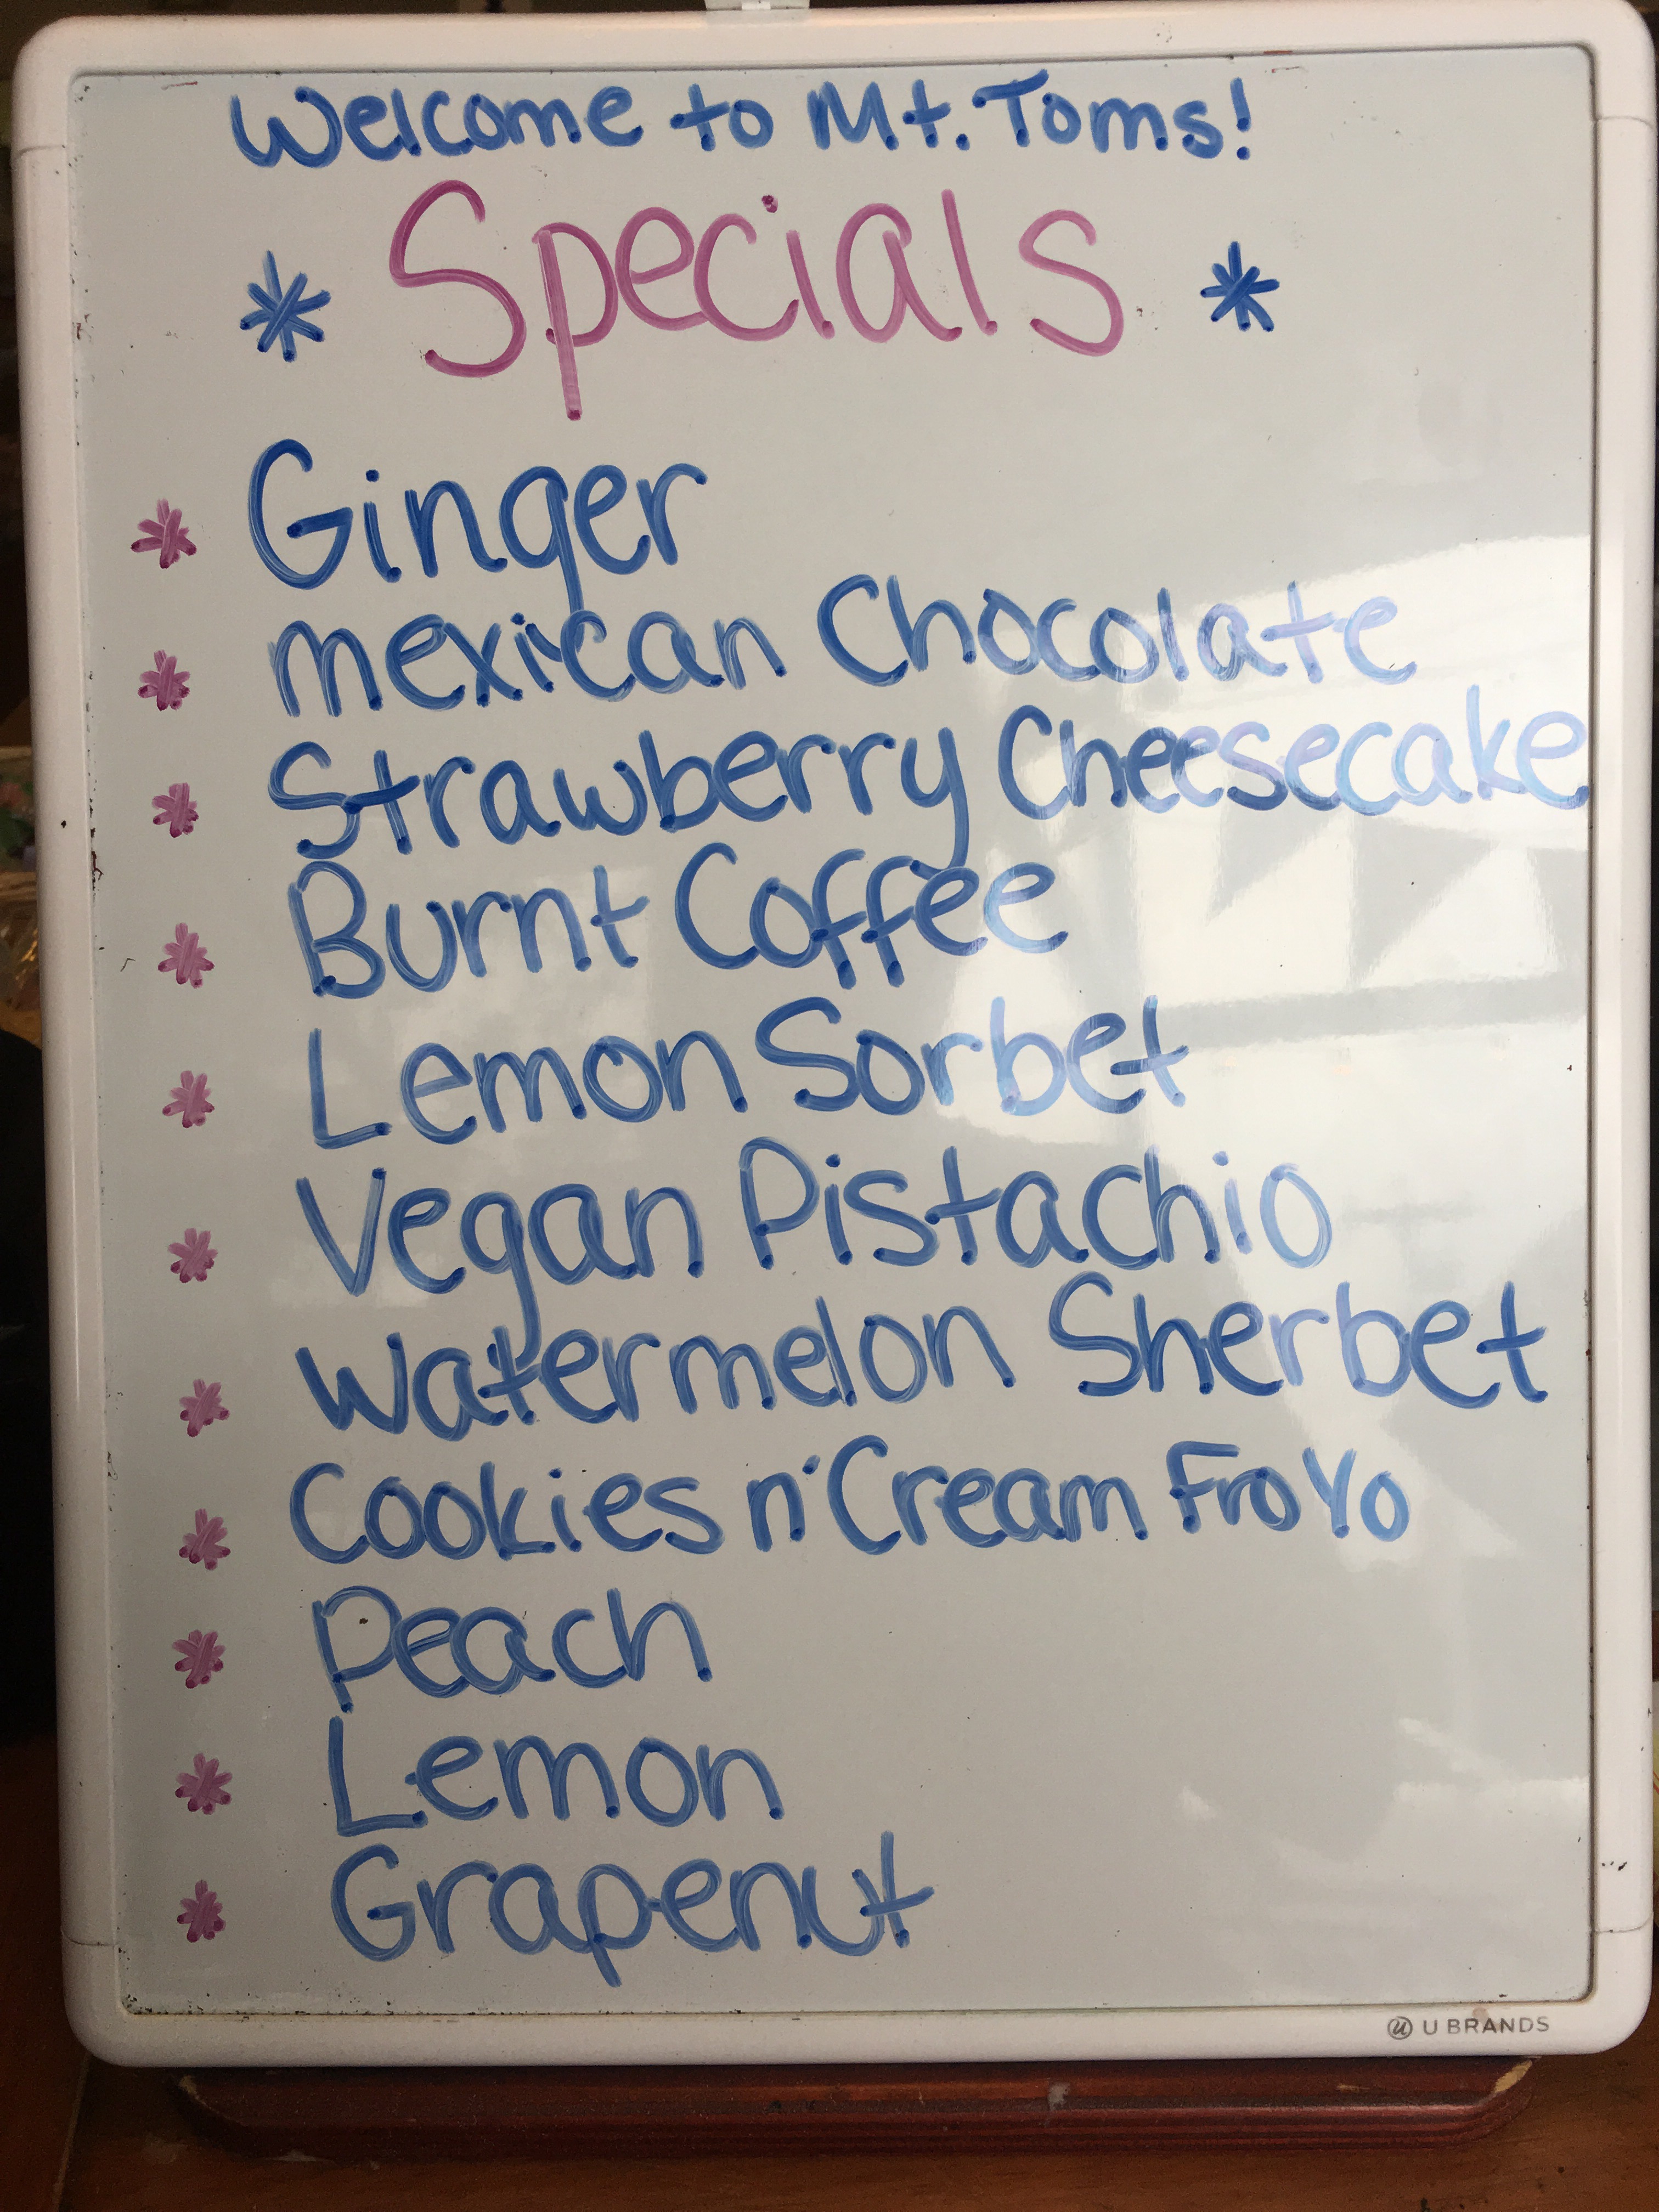 Welcome to Mt. Toms!
* Specials *
* Ginger
* mexican Chocolate
* Strawberry Cheesecake
* Burnt Coffee
* Lemon Sorbet
* Vegan Pistachio
* Watermelon Sherbet
* Cookies n' Cream FroYo
* Peach
* Lemon
* Grapenut
U BRANDS